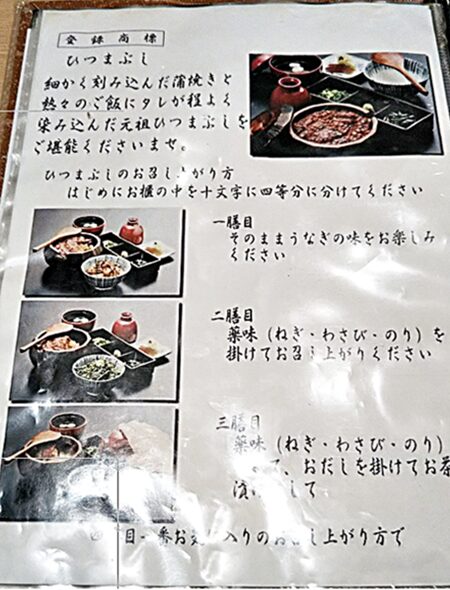 登録商標
ひつまぶし
細かく刻み込んだ蒲焼きと
熱々のご飯にタレが程よく
染み込んだ元祖ひつまぶしを
ご堪能くださいませ。
ひつまぶしのお召し上がり方
はじめにお櫃の中を十文字に四等分に分けてください
一膳目
そのままうなぎの味をお楽しみ
ください
二膳目
薬味(ねぎ・わさび・のり)を
掛けてお召し上がりください
三膳目
薬味(ねぎ・わさび・のり)
て、おだしを掛けてお茶
漬 して
目 一番お 入りのお召し上がり方で